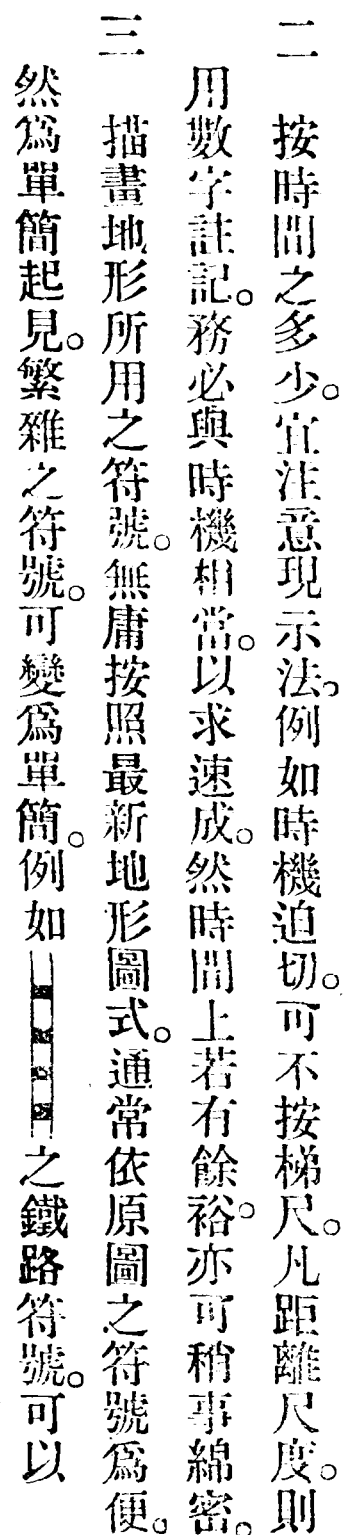 二　按時間之多少。宜注意現示法。例如時機迫切。可不按梯尺。凡距離尺度。則
用數字註記。務必與時機相當。以求速成。然時間上若有餘裕。亦可稍事綿密。
三　描畫地形所用之符號。無庸按照最新地形圖式。通常依原圖之符號爲便。
然爲單簡起見。繁雜之符號。可變爲單簡。例如之鐵路符號。可以